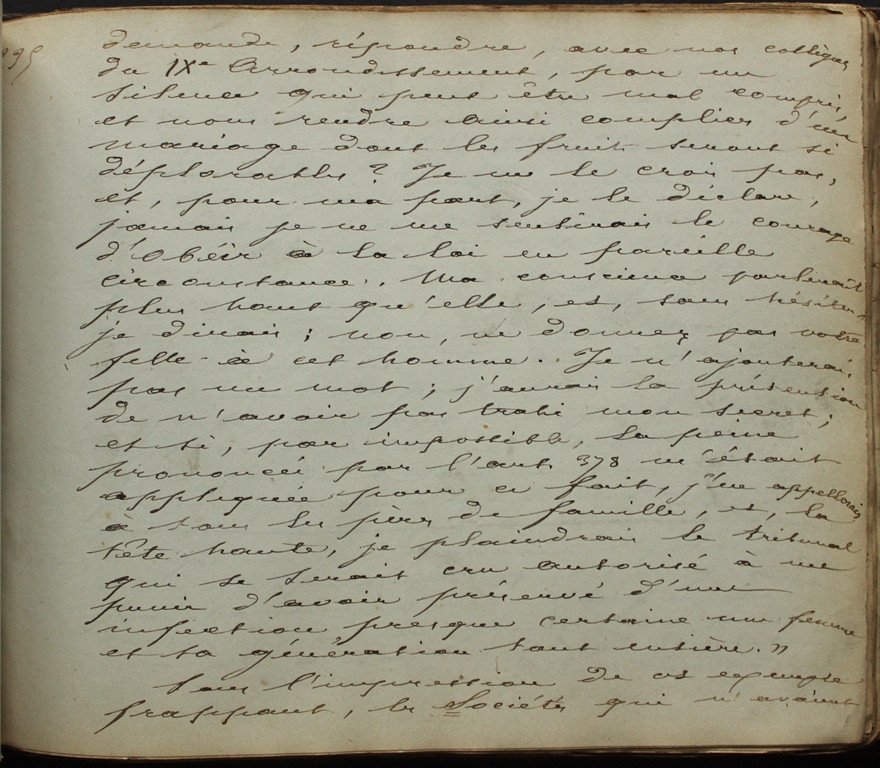 995
demande, répondre, avec nos collègues
du IXe Arrondissement, par un
silence qui peut être mal compris,
et nous rendre ainsi complices d'un
mariage dont les fruits seront si
déplorables ? Je ne le crois pas,
et, pour ma part, je le déclare,
jamais je ne me sentirais le courage
d'obéir à la loi en pareille
circonstance. Ma conscience parlerait
plus haut qu'elle, et, sans hésiter
je dirais : non, ne donnez pas votre
fille à cet homme. Je n'ajouterais
pas un mot ; j'aurais la prétention
de n'avoir pas trahi mon secret ;
et si, par impossible, la peine
prononcée par l'art 378 m'était
appliquée pour ce fait, j'en appellerais
à tous les pères de famille, et, la
tête haute, je plaindrais le tribunal
qui se serait cru autorisé à me
punir d'avoir préservé d'une
infection presque certaine une femme
et sa génération tout entière. »
Sous l'impression de ces exemples
frappant, les Sociétés qui n'avaient